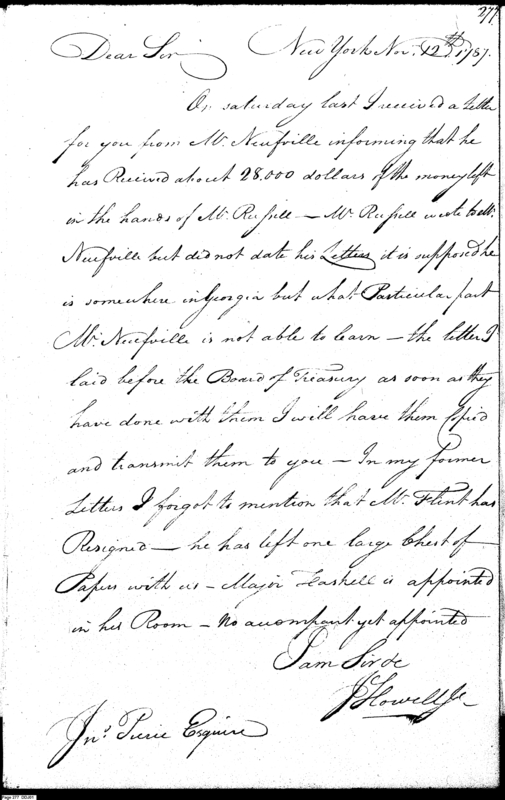 277
Dear Sir New York Nov. 12th 1787.
On saturday last I received a Letter
for you from Mr. Neufville informing that he
has Received about 28.000 dollars of the money left
in the hands of Mr. Russell — Mr. Russell wrote to Mr.
Neufville but did not date his Letters it is supposed he
is somewhere in Georgia but what Particular part
Mr. Neufville is not able to learn — the letter I
laid before the Board of Treasury as soon as they
have done with them I will have them Copied
and transmit them to you — In my former
Letters I forgot to mention that Mr. Flint has
Resigned — he has left one large Chest of
Papers with us — Major Haskell is appointed
in his Room — No accompant yet appointed
I am Sir &c
J Howell Jr
Jno. Pierce Esquire
Page 277